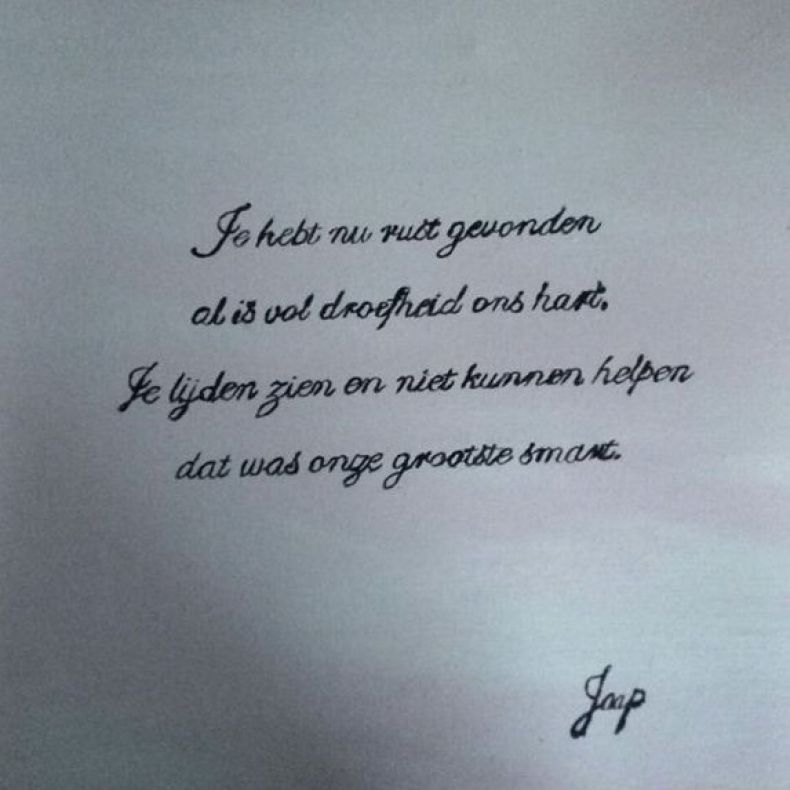 Je hebt nu rust gevonden
al is vol droefheid ons hart.
Je lijden zien en niet kunnen helpen
dat was onze grootste smart.
Jaap